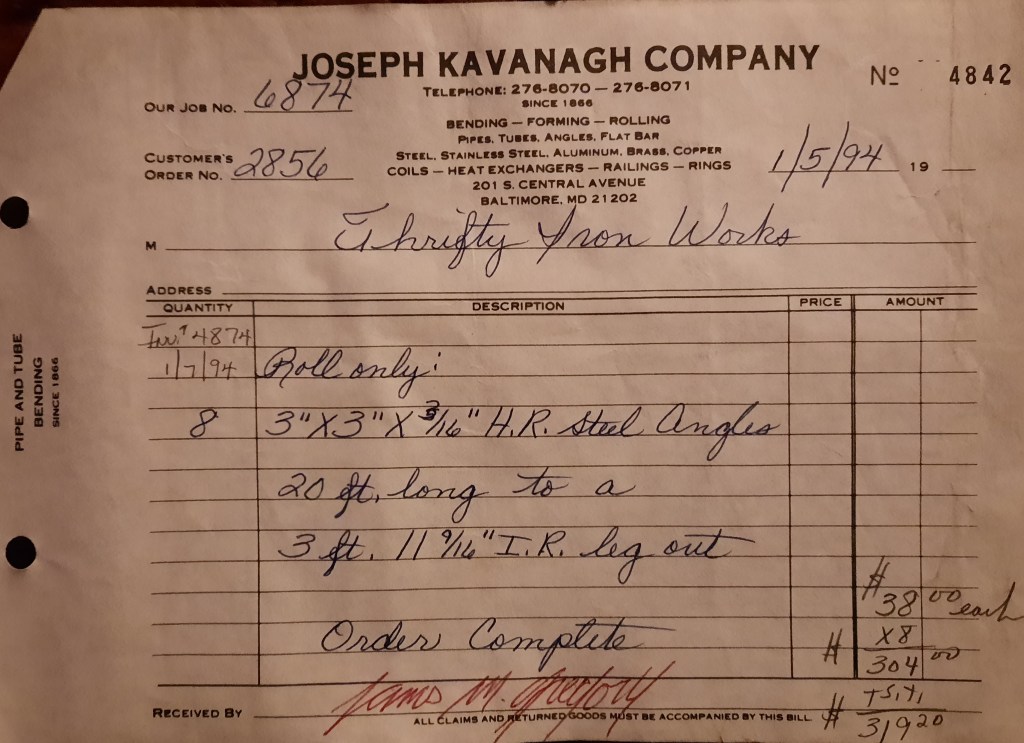 JOSEPH KAVANAGH COMPANY
Nº 4842
TELEPHONE: 276-8070 — 276-8071
SINCE 1866
OUR JOB NO. 6874
BENDING — FORMING — ROLLING
PIPES, TUBES, ANGLES, FLAT BAR
STEEL, STAINLESS STEEL, ALUMINUM, BRASS, COPPER
CUSTOMER'S
ORDER NO. 2856
COILS — HEAT EXCHANGERS — RAILINGS — RINGS
1/5/94 19
201 S. CENTRAL AVENUE
BALTIMORE, MD 21202
M Thrifty Iron Works
ADDRESS
QUANTITY DESCRIPTION PRICE AMOUNT
4874
1/7/94 Roll only:
8 3" X 3" X 3/16" H.R. Steel Angles
20 ft. long to a
3 ft. 11 9/16" I.R. leg out
$38 00 each
X8
Order Complete $ 304 00
James M. Gregory
RECEIVED BY
ALL CLAIMS AND RETURNED GOODS MUST BE ACCOMPANIED BY THIS BILL
$ 319 20
PIPE AND TUBE
BENDING
SINCE 1866